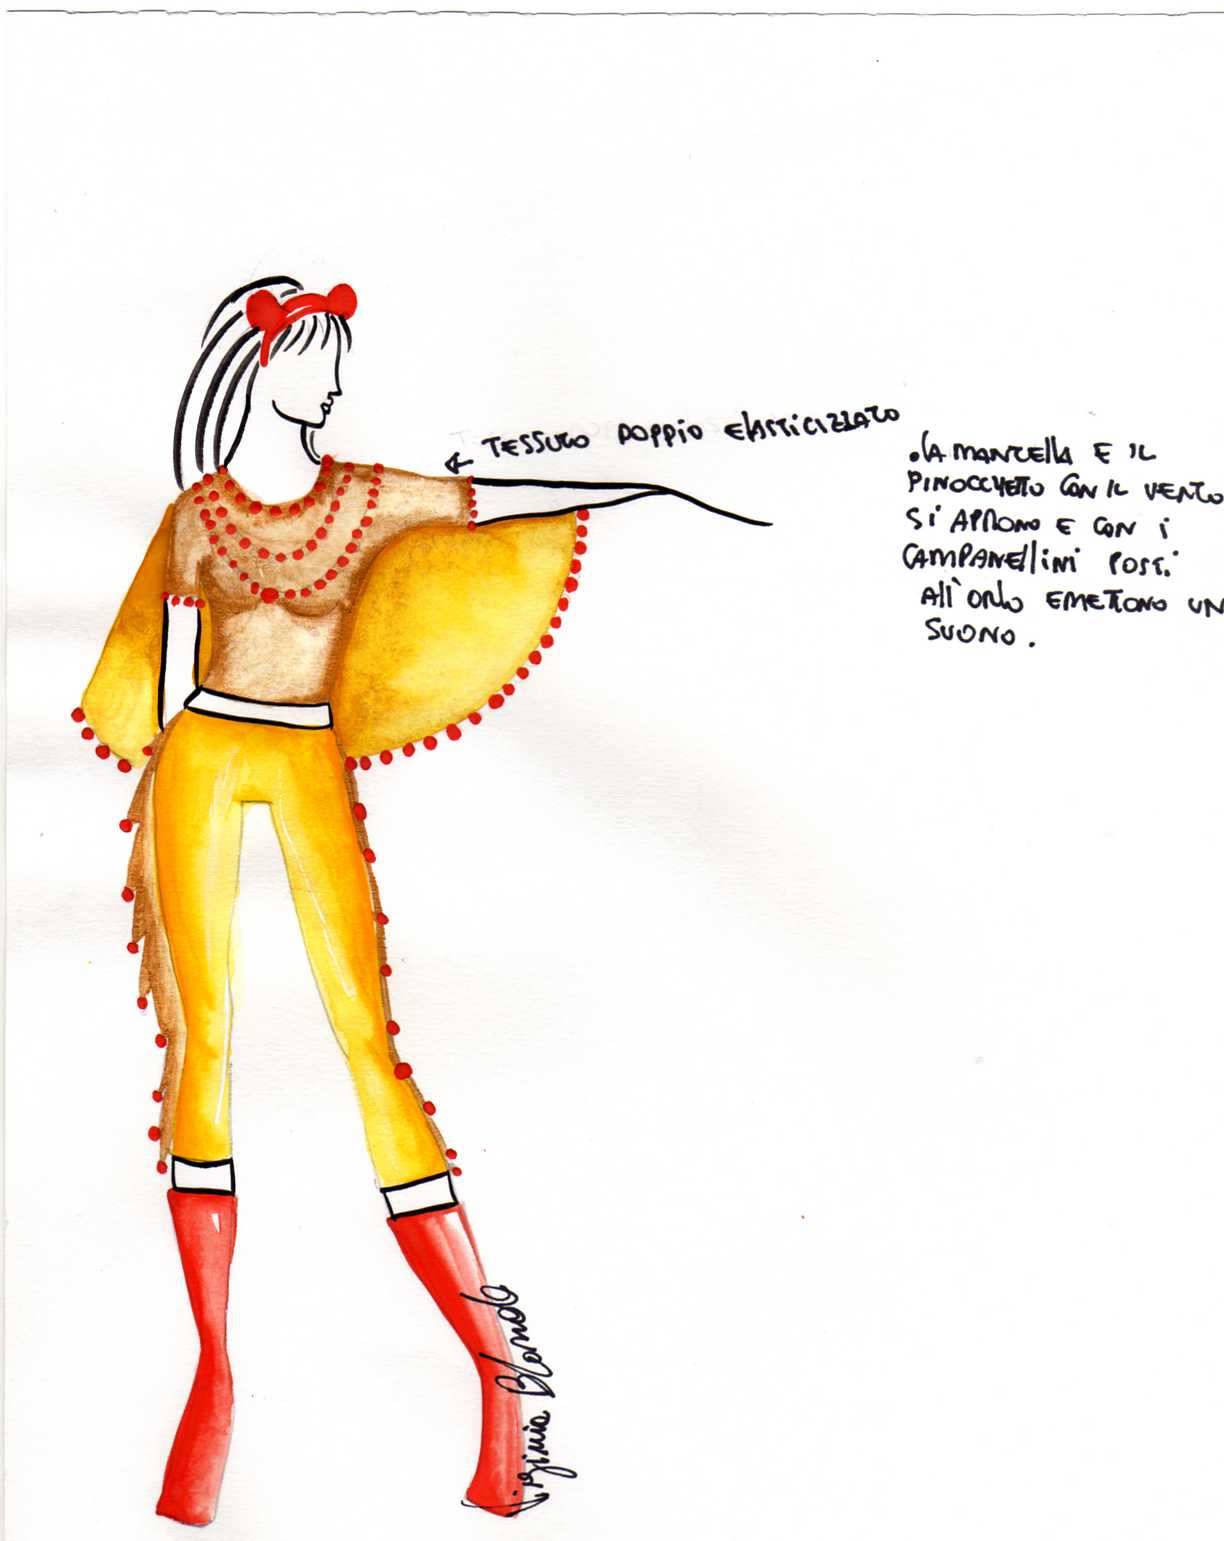 TESSUTO DOPPIO ELASTICIZZATO
.LA MANTELLA E IL
PINOCCHETTO CON IL VENTO
SI APRONO E CON I
CAMPANELLINI POSTI
ALL'ORLO EMETTONO UN
SUONO.
Virginia Blando